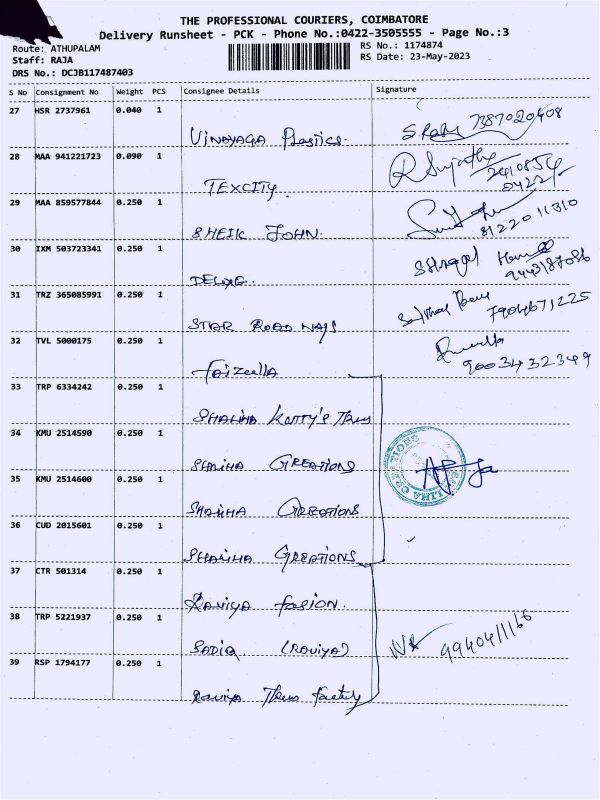 THE PROFESSIONAL COURIERS, COIMBATORE
Delivery Runsheet - PCK - Phone No.:0422-3505555 - Page No.:3
Route: ATHUPALAM
RS No.: 1174874
Staff: RAJA
RS Date: 23-May-2023
DRS No.: DCJB117487403
S No Consignment No Weight PCS Consignee Details Signature
27 HSR 2737961 0.040 1
VINAYAGA Plastics. 7387020408
28 MAA 941221723 0.090 1
TEXCITY. 2410854
0422
29 MAA 859577844 0.250 1
SHEIK JOHN. 8122011310
30 IXM 503723341 0.250 1
DELUXE. 9443187086
31 TRZ 365085991 0.250 1
STAR ROAD WAYS 7904671225
32 TVL 5000175 0.250 1
Faizulla 9003432349
33 TRP 6334242 0.250 1
SHALIHA
34 KMU 2514590 0.250 1
SHALIHA CREATIONS
35 KMU 2514600 0.250 1
SHALIHA CREATIONS
36 CUD 2015601 0.250 1
SHALIHA CREATIONS
37 CTR 501314 0.250 1
Raviya fasion.
38 TRP 5221937 0.250 1
SADIQ (RAVIYA)
39 RSP 1794177 0.250 1
Raviya